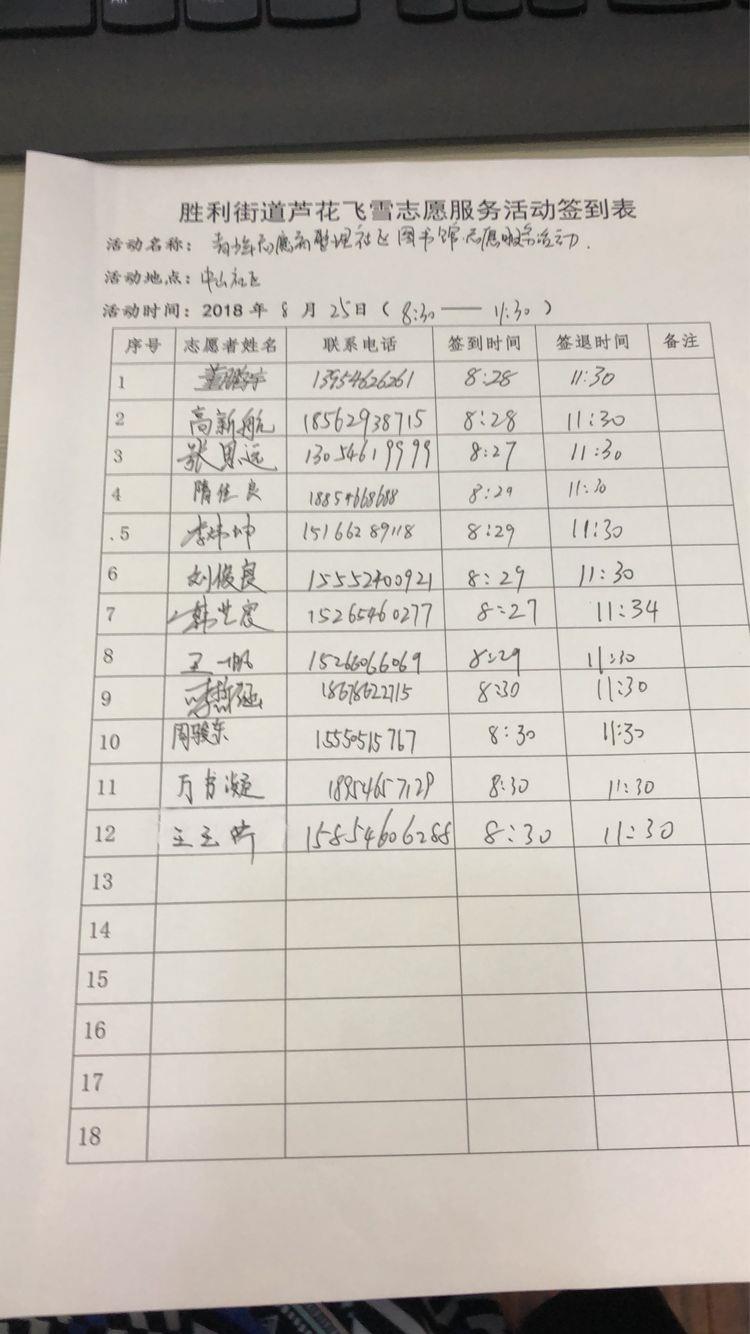 胜利街道芦花飞雪志愿服务活动签到表
活动名称：青年志愿者整理社区图书馆志愿服务活动.
活动地点：中山社区
活动时间：2018 年 8 月 25日（8:30 —— 11:30）
序号 志愿者姓名 联系电话 签到时间 签退时间 备注
1 13954626261 8:28 11:30
2 高新航 18562938715 8:28 11:30
3 张恩远 13054619999 8:27 11:30
4 隋佳良 18854668688 8:29 11:30
.5 李炜坤 15166289118 8:29 11:30
6 刘俊良 15552400921 8:29 11:30
7 韩世震 15265460277 8:27 11:34
8 王一帆 15266066069 8:29 11:30
9 李哲涵 18678622715 8:30 11:30
10 周骏东 15550515767 8:30 11:30
11 万书凝 18954657129 8:30 11:30
12 王玉 15854606288 8:30 11:30
13
14
15
16
17
18